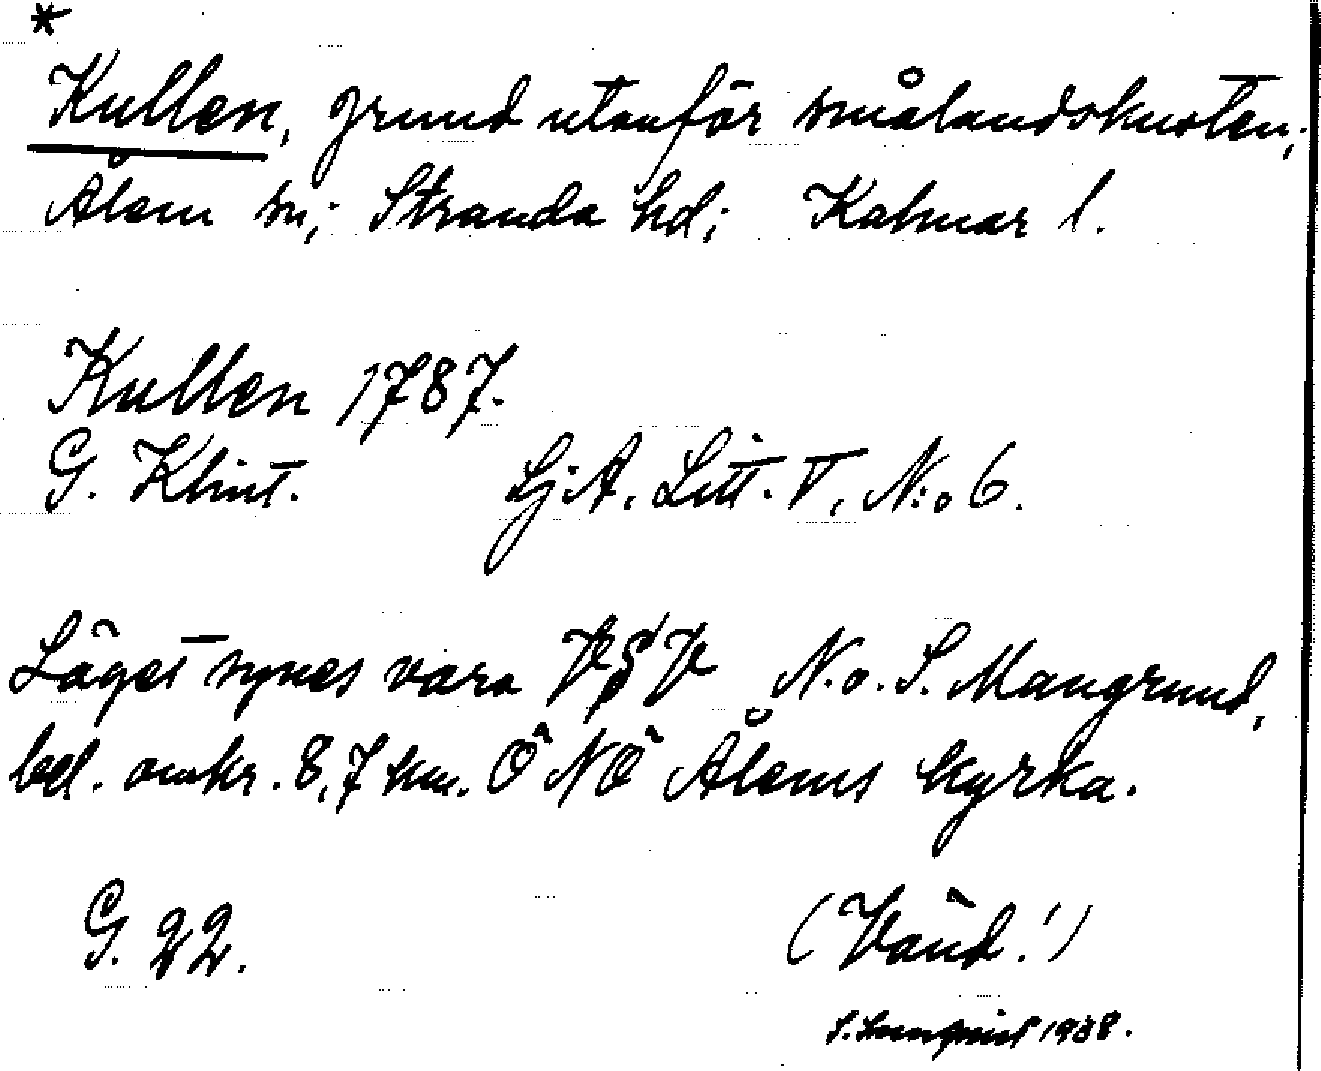 *
Kullen, grund utanför smålandskusten;
Ålem sn; Stranda hd; Kalmar l.
Kullen 1787.
G. Klint. Sj.A. Litt. V. N:o 6.
Läget synes vara VSV N.o. S. Mangrund,
bel. omkr. 8,7 km. ÖNÖ Ålems kyrka.
G. 22.
(Vänd!)
S. 1938.